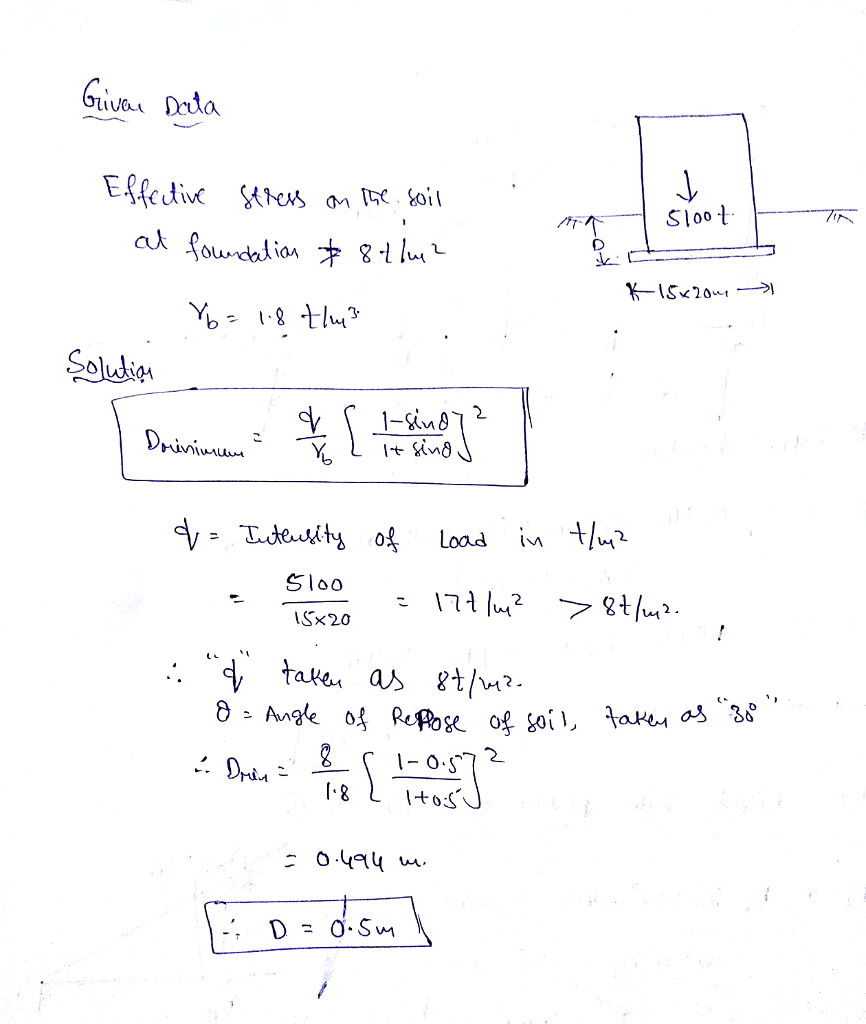 Given Data
Effective stress on the soil
at foundation ≯ 8t/m²
5100t
D
15x20m
γb = 1.8 t/m³
Solution
Dminimum = q/γb [ 1-sinθ / 1+sinθ ]²
q = Intensity of Load in t/m²
= 5100 / 15x20 = 17t/m² > 8t/m².
∴ "q" taken as 8t/m².
θ = Angle of Repose of soil, taken as "30°"
∴ Dmin = 8/1.8 [ 1-0.5 / 1+0.5 ]²
= 0.494 m.
∴ D = 0.5m